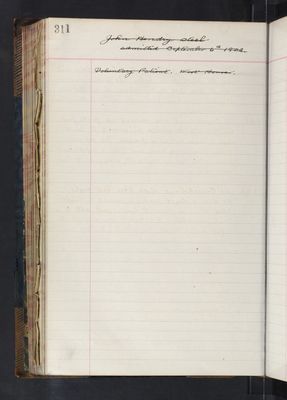 311
John Hendry Steel
admitted September 6th 1902
Voluntary Patient. West House.